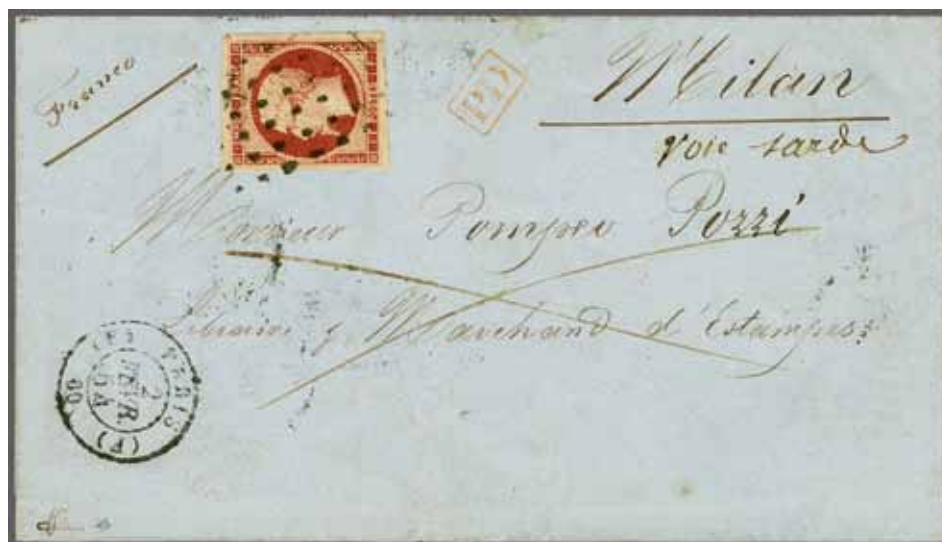 Franco
P.D.
Milan
voie sarde
Monsieur Pompeo Pozzi
Libraire & Marchand d'Estampes
PARIS
2
FEVR.
54
(A)
(60)